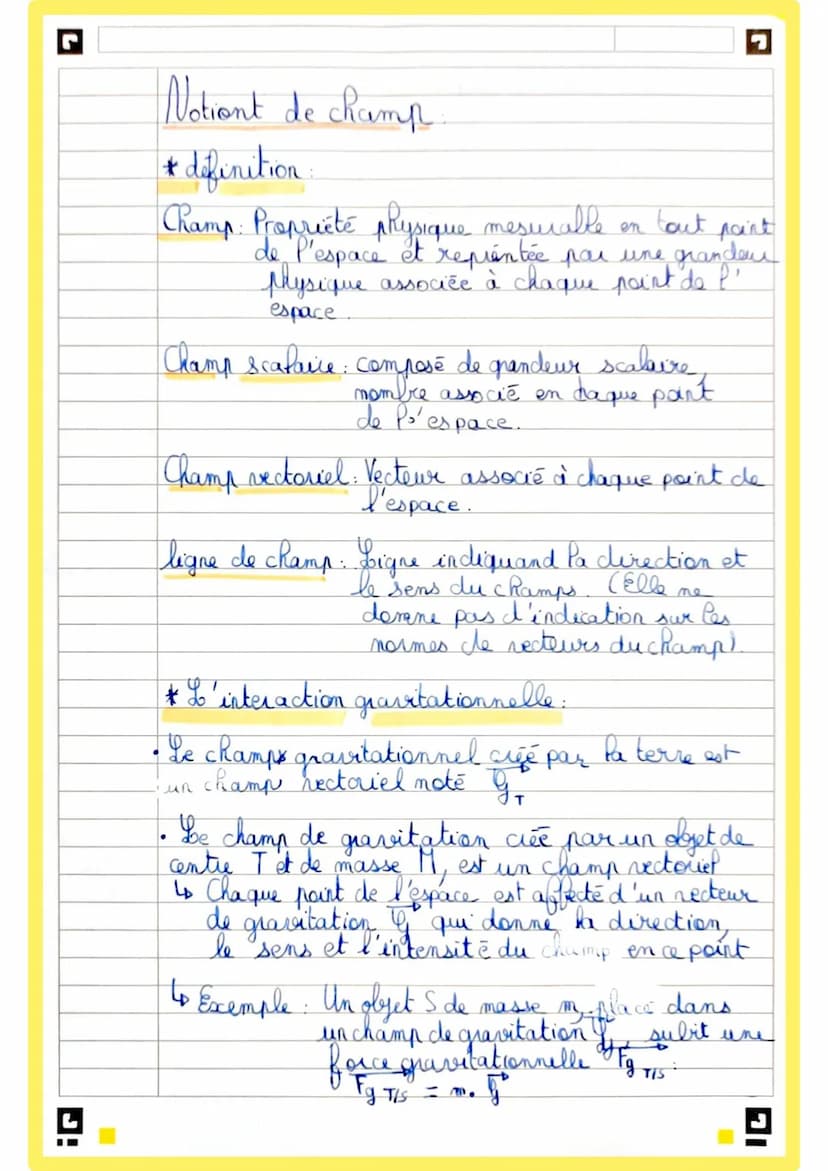 Notiont de champ.
* définition :
Champ : Propriété physique mesurable en tout point
de l'espace et repréntée par une grandeur
physique associée à chaque point de l'
espace.
Champ scalaire : composé de grandeur scalaire,
nombre associé en chaque point
de l'espace.
Champ vectoriel : Vecteur associé à chaque point de
l'espace.
ligne de champ : Ligne indiquand la direction et
le sens du champs. (Elle ne
donne pas d'indication sur les
normes de vecteurs du champ).
* L'interaction gravitationnelle :
• Le champ gravitationnel créé par la terre est
un champ vectoriel noté G⃗_T
• Le champ de gravitation créé par un objet de
centre T et de masse M, est un champ vectoriel
↳ Chaque point de l'espace est affecté d'un vecteur
de gravitation G⃗ qui donne la direction,
le sens et l'intensité du champ en ce point
↳ Exemple : Un objet S de masse m, placé dans
un champ de gravitation G⃗, subit une
force gravitationnelle F⃗g T/S :
F⃗g T/S = m. G⃗